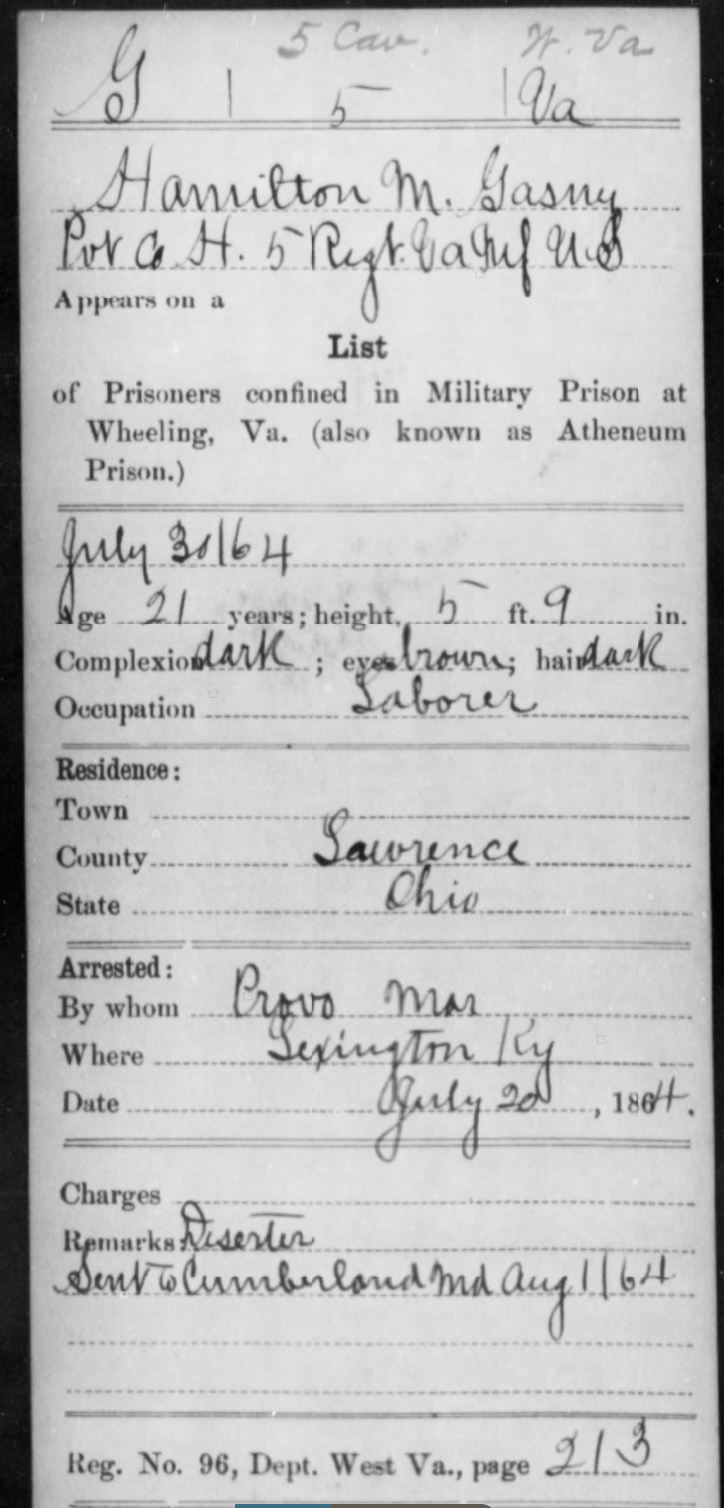 5 Cav. W. Va
G | 5 | Va
Hamilton M. Gasny
Pvt Co H. 5 Regt. Va Inf U.S
Appears on a
List
of Prisoners confined in Military Prison at
Wheeling, Va. (also known as Atheneum
Prison.)
July 30/64
Age 21 years; height, 5 ft. 9 in.
Complexion dark; eyes brown; hair dark
Occupation Laborer
Residence:
Town
County Lawrence
State Ohio
Arrested:
By whom Provo Mar
Where Lexington Ky
Date July 20, 1864.
Charges
Remarks: Deserter
Sent to Cumberland Md Aug 1/64
Reg. No. 96, Dept. West Va., page 213